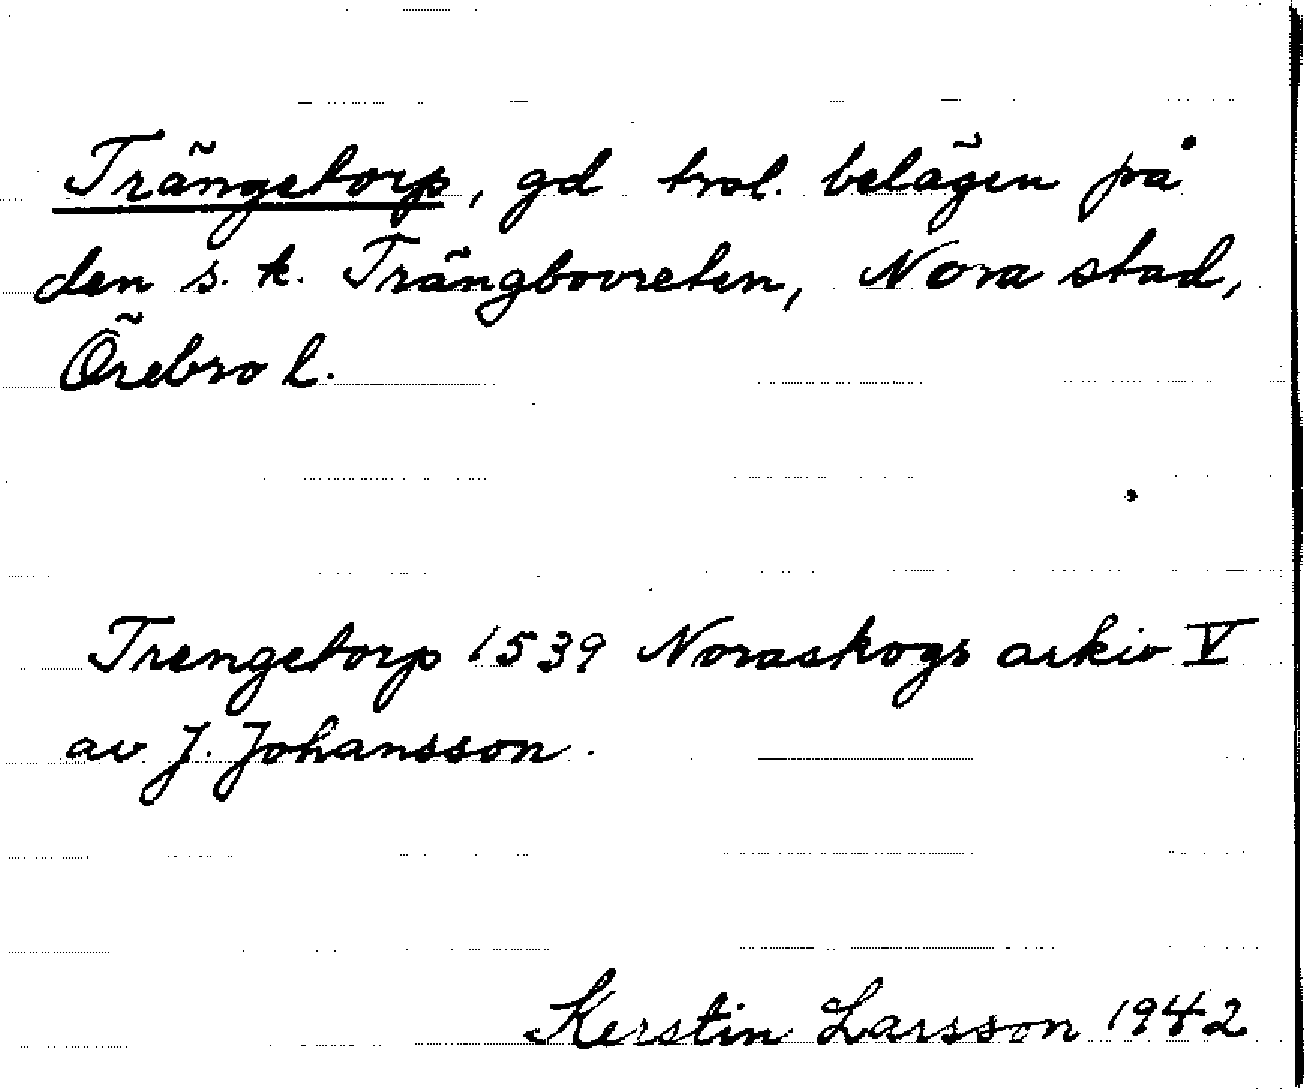 Trängetorp, gd trol. belägen på
den s. k. Trängbovreten, Nora stad,
Örebro l.
Trengetorp 1539 Noraskogs arkiv V
av J. Johansson.
Kerstin Larsson 1942